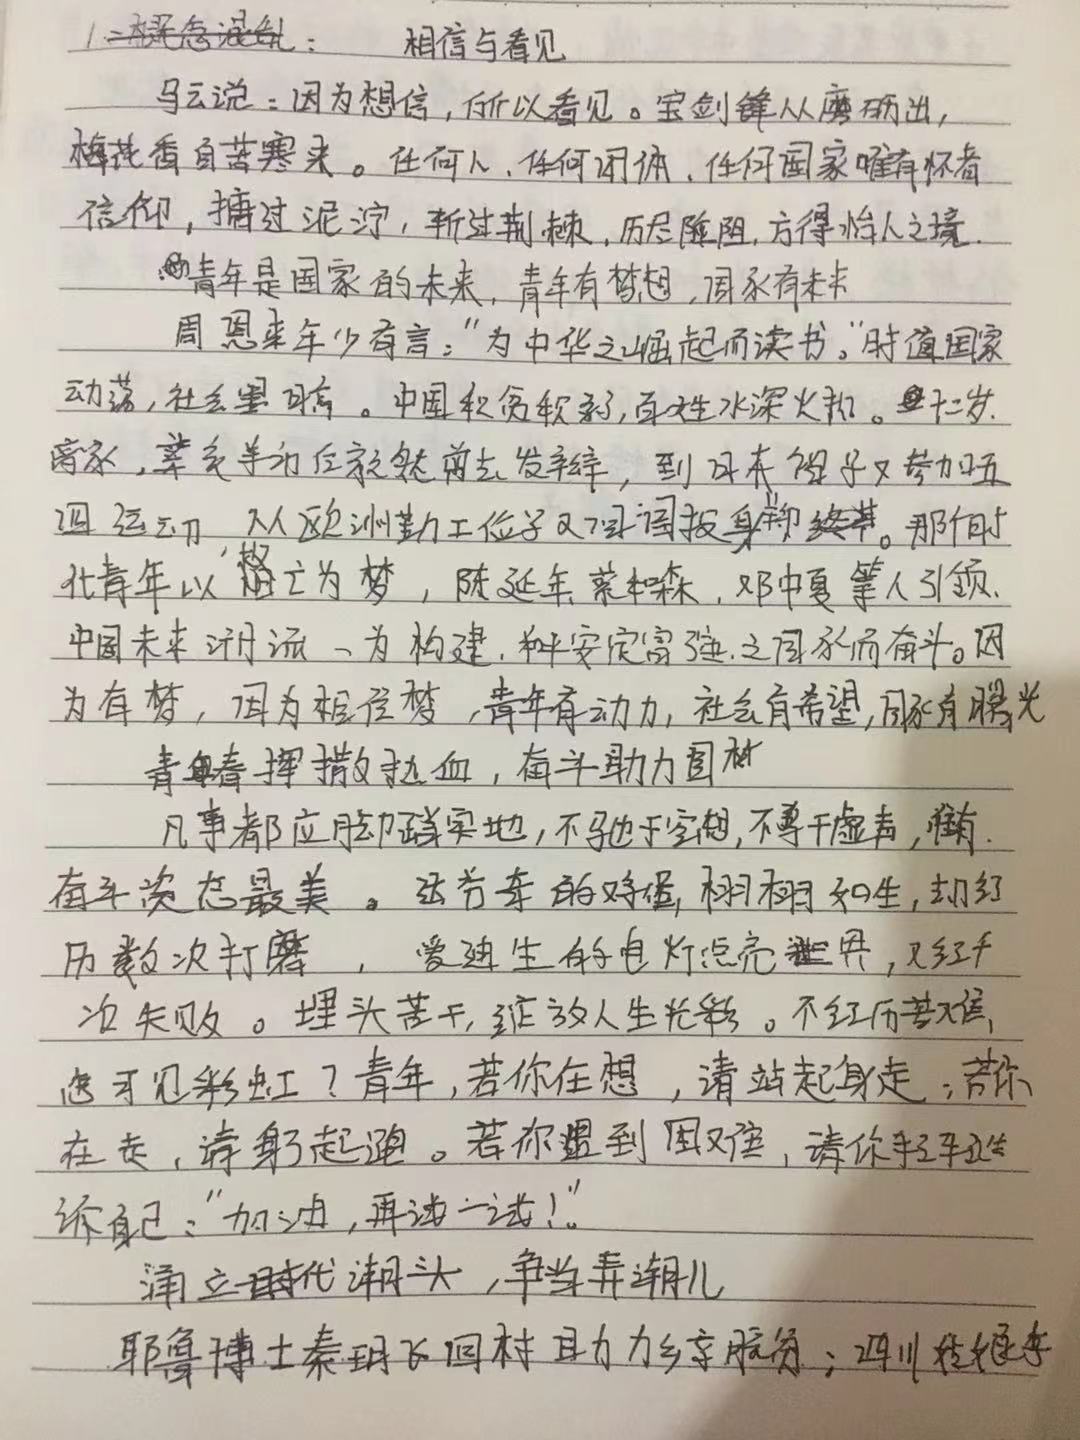 相信与看见
马云说：因为想信，所以看见。宝剑锋从磨砺出，
梅花香自苦寒来。任何人、任何团体、任何国家唯有怀着
信仰，搪过泥泞，斩过荆棘，历尽险阻，方得怡人之境。
青年是国家的未来，青年有梦想，国家有未来
周恩来年少有言："为中华之崛起而读书。"时值国家
动荡，社会黑暗。中国积贫积弱，百姓水深火热。十二岁
离家，剪去发辫，到日本 又参加五
四运动，从欧洲勤工 又回国投身 。那个时
代青年以救亡为梦，陈延年、蔡和森、邓中夏等人引领
中国未来潮流、为构建和平安定富强之国家而奋斗。因
为有梦，因为相信梦，青年有动力，社会有希望，国家有曙光
青春挥撒热血，奋斗助力圆梦
凡事都应脚踏实地，不驰于空想，不骛于虚声，唯有
奋斗姿态最美。 栩栩如生，却经
历数次打磨，爱迪生的电灯点亮世界，又经千
次失败。埋头苦干，绽放人生光彩。不经历苦难，
怎可见彩虹？青年，若你在想，请站起身走；若你
在走，请 起跑。若你遇到困难，请你轻轻告
诉自己："加油，再试一试！"。
涌立时代潮头，争当弄潮儿
耶鲁博士秦玥飞回村助力乡亲脱贫；四川